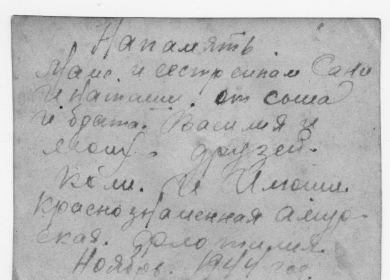 На память
Маме. и сестренкам Сани
и Наташи. от сына
и брата. Василия и
друзей.
Коли. и
Краснознаменная Амур-
ская.
Ноябрь. 1944 год